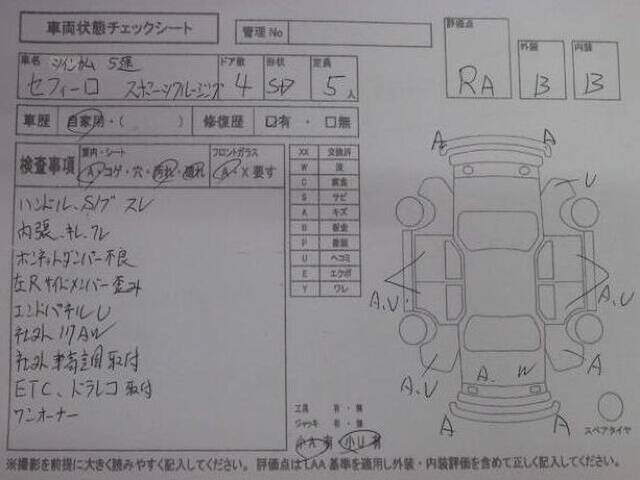 車両状態チェックシート
管理No
評価点
RA
外装
B
内装
B
車名
ツインカム 5速
セフィーロ スポーツクルージング
ドア数
4
形状
SD
定員
5人
車歴 自家用・( ) 修復歴 ☑有・□無
検査事項
室内・シート
A コゲ・穴・汚れ・濡れ
フロントガラス
A・X 要す
ハンドル、S/ブ スレ
内張、キレ、
ボンネットダンパー不良
左Rサイドメンバー歪み
エンドパネルU
社外17AW
社外車高調取付
ETC、ドラレコ取付
ワンオーナー
XX 交換済
W 波
C 腐食
S サビ
A キズ
B 板金
P 塗装
U ヘコミ
E エクボ
Y ワレ
A
A
U
A.U
A.U
A.U
A
A
W
A
A
工具 有・無
ジャッキ 有・無
スペアタイヤ
※撮影を前提に大きく読みやすく記入してください。評価点はLAA基準を適用し外装・内装評価を含めて正しく記入してください。